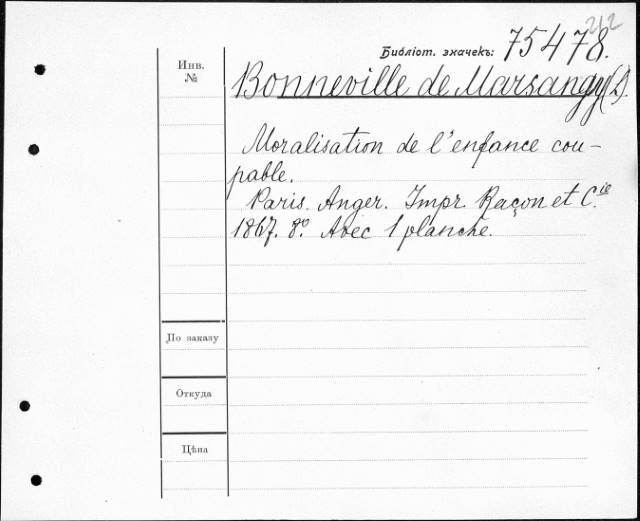 212
Библіот. значекъ: 75478.
Инв.
№
Bonneville de Marsangy (A).
Moralisation de l'enfance cou-
pable.
Paris. Anger. Impr. Raçon et Cie
1867. 8º. Avec 1 planche.
По заказу
Откуда
Цѣна